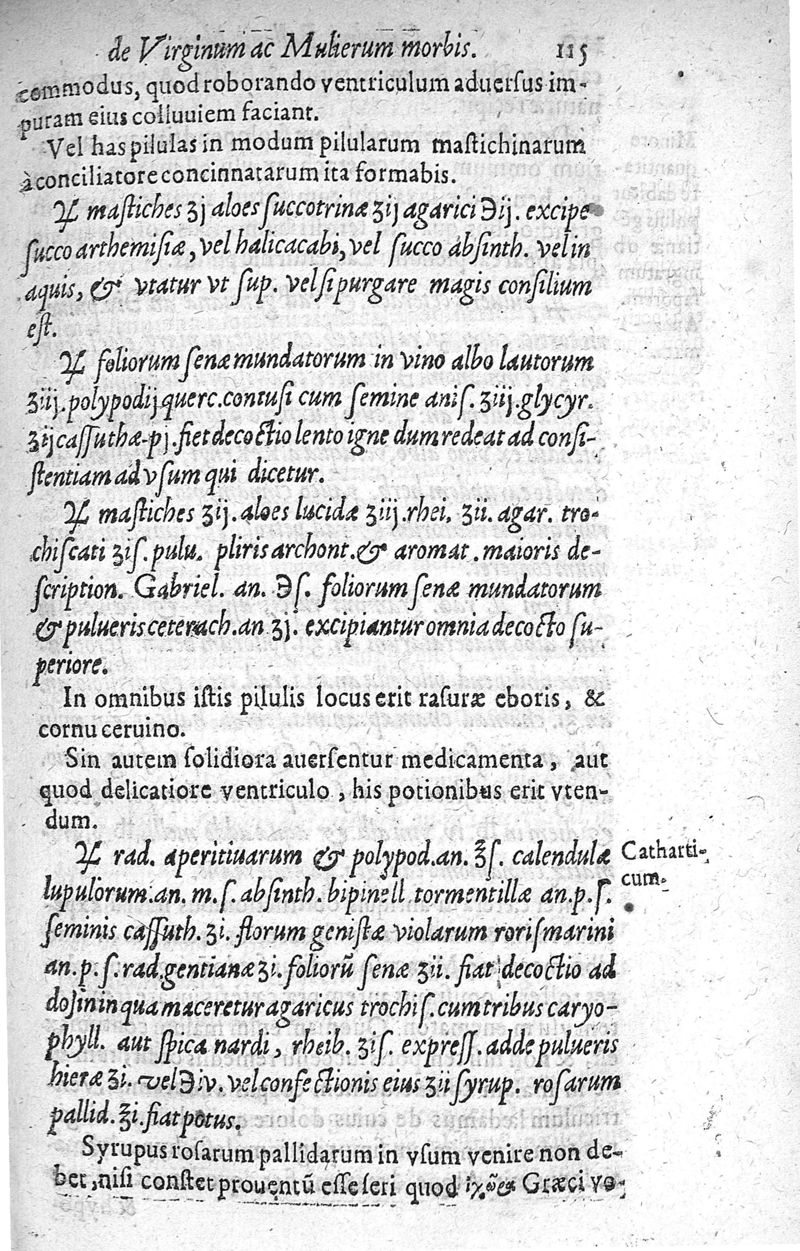 de Virginum ac Mulierum morbis. 115
commodus, quod roborando ventriculum aduersus im-
puram eius colluuiem faciant.
Vel has pilulas in modum pilularum mastichinarum
à conciliatore concinnatarum ita formabis.
℞ mastiches ʒj aloes succotrinæ ʒij agarici ℈ij. excipe
succo arthemisiæ, vel halicacabi, vel succo absinth. vel in
aquis, & vtatur vt sup. vel si purgare magis consilium
est.
℞ foliorum senæ mundatorum in vino albo lautorum
ʒiij. polypodij querc. contusi cum semine anis. ʒiij. glycyr.
ʒij cassuthæ. pj. fiet decoctio lento igne dum redeat ad consi-
stentiam ad vsum qui dicetur.
℞ mastiches ʒij. aloes lucidæ ʒiij. rhei. ʒii. agar. tro-
chiscati ʒiſ. pulu. pliris archont. & aromat. maioris de-
scription. Gabriel. an. ℈ſ. foliorum senæ mundatorum
& pulueris ceterach. an ʒj. excipiantur omnia decocto su-
periore.
In omnibus istis pilulis locus erit rasuræ eboris, &
cornu ceruino.
Sin autem solidiora auersentur medicamenta, aut
quod delicatiore ventriculo, his potionibus erit vten-
dum.
℞ rad. aperitiuarum & polypod. an. ℥ſ. calendulæ
Catharti-
cum.
lupulorum. an. m. ſ. absinth. bipinell. tormentillæ an. p. ſ.
seminis cassuth. ʒi. florum genistæ violarum rorismarini
an. p. ſ. rad. gentianæ ʒi. foliorũ senæ ʒii. fiat decoctio ad
in qua maceretur agaricus trochis. cum tribus caryo-
phyll. aut spica nardi, rheib. ʒiſ. express. adde pulueris
hieræ ʒi. vel ℈iv. vel confectionis eius ʒii syrup. rosarum
pallid. ʒi. fiat potus.
Syrupus rosarum pallidarum in vsum venire non de-
bet, nisi constet prouentũ esse seri quod Græci vo-